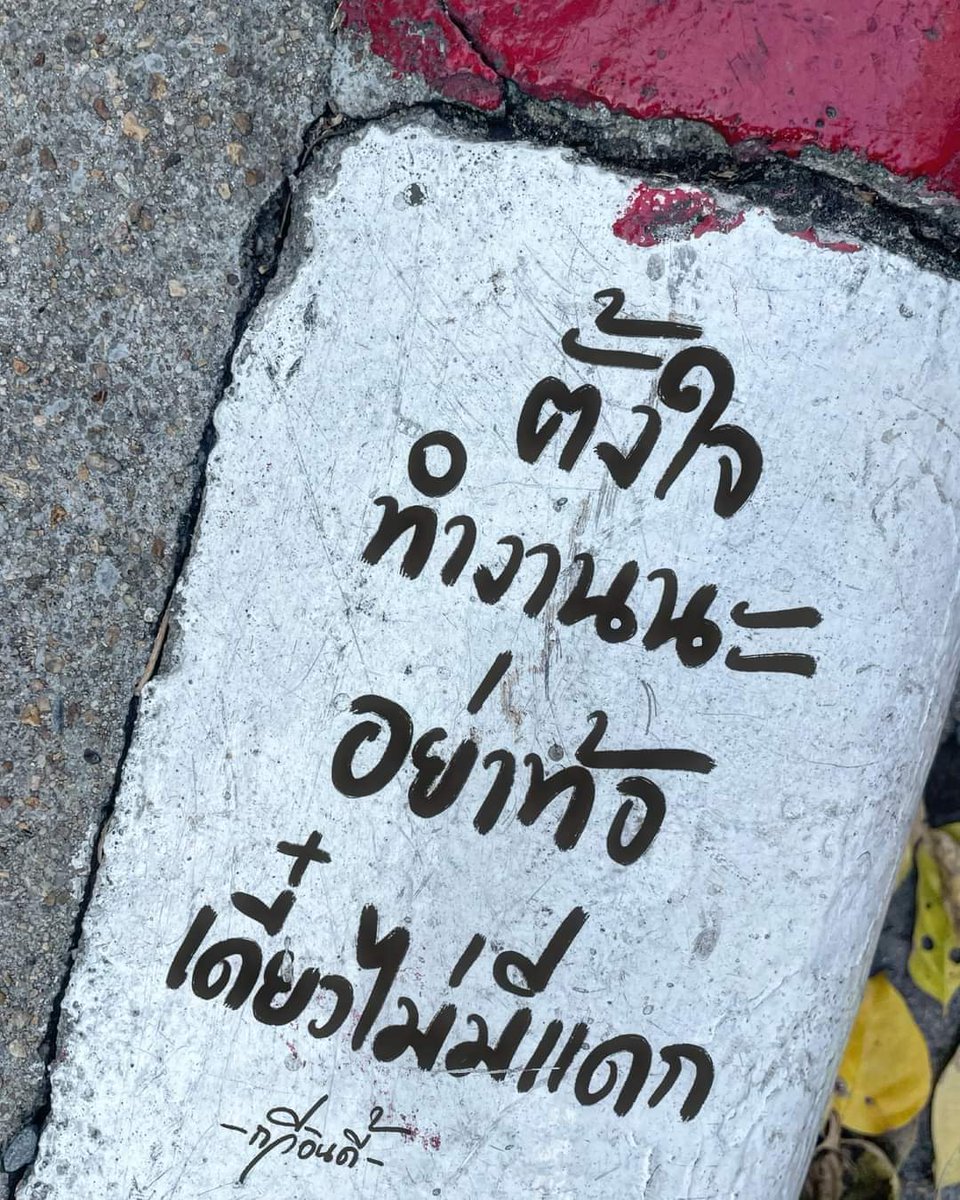 ตั้งใจ
ทำงานนะ
อย่าท้อ
เดี๋ยวไม่มีแดก
-กวีอินดี้-